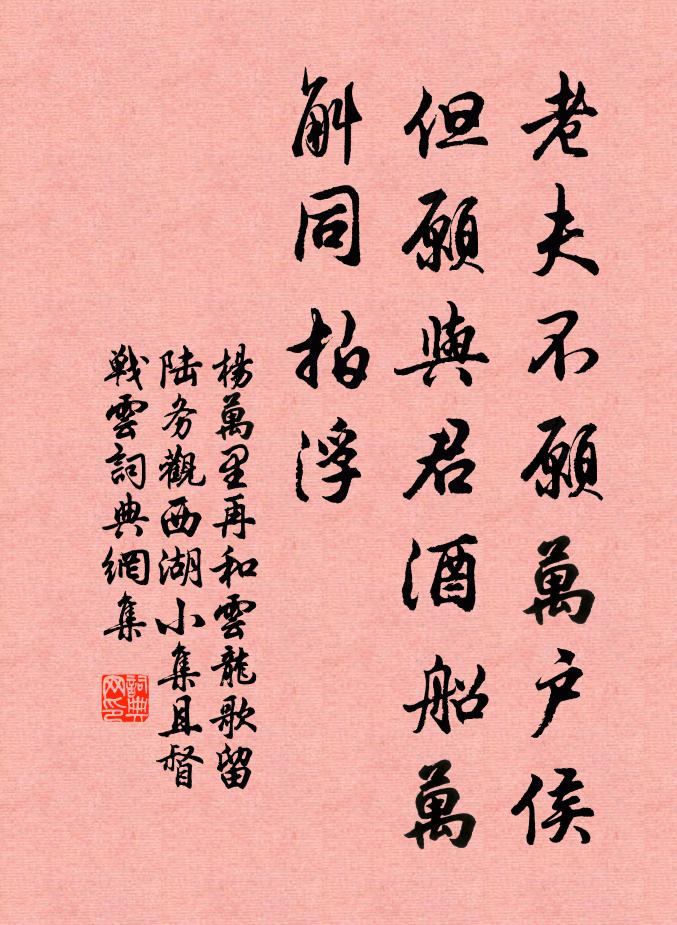 老夫不願萬户侯
但願與君酒船萬
斛同拍浮
楊萬里再和雲龍歌留
陆务觀西湖小集且督
戰雲詞典網集
詞典
网印